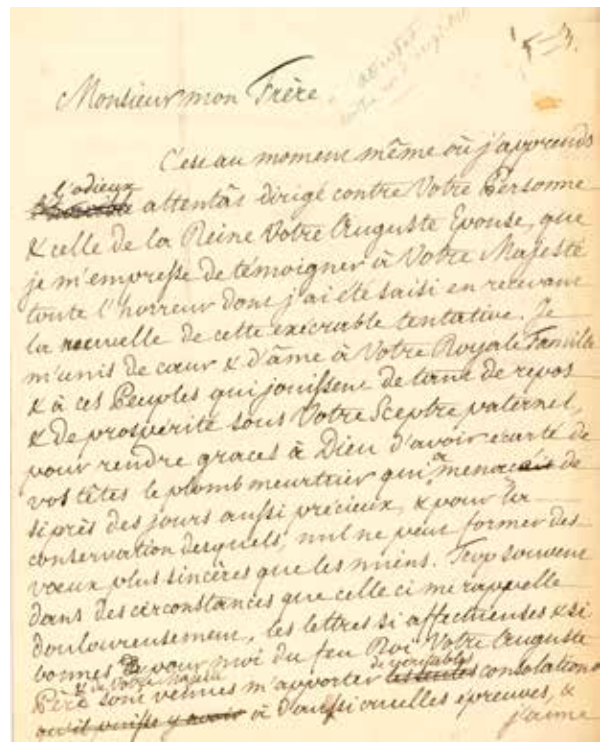 Monsieur mon Frère
C'est au moment même où j'apprends
l'odieux
attentat dirigé contre Votre Personne
& celle de la Reine Votre Auguste Epouse, que
je m'empresse de témoigner à Votre Majesté
toute l'horreur dont j'ai été saisi en recevant
la nouvelle de cette exécrable tentative. Je
m'unis de cœur & d'âme à Votre Royale Famille
& à ces Peuples qui jouissent de tant de repos
& de prospérité sous Votre Sceptre paternel,
pour rendre graces à Dieu d'avoir écarté de
vos têtes le plomb meurtrier qui a menacé de
si près des jours aussi précieux, & pour la
conservation desquels, nul ne peut former des
vœux plus sincères que les miens. Trop souvent
dans des circonstances que celle ci me rappelle
douloureusement, les lettres si affectueuses & si
bonnes pour moi du feu Roi Votre Auguste
& de Votre Majesté
Père sont venues m'apporter les seules consolations
de véritables
qu'il puisse y avoir à d'aussi cruelles épreuves, &
j'aime